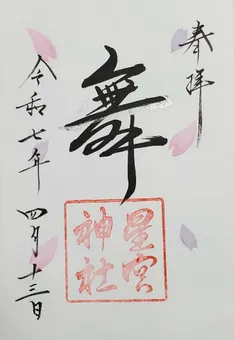 奉拝
舞
星宮
神社
令和七年 四月十三日